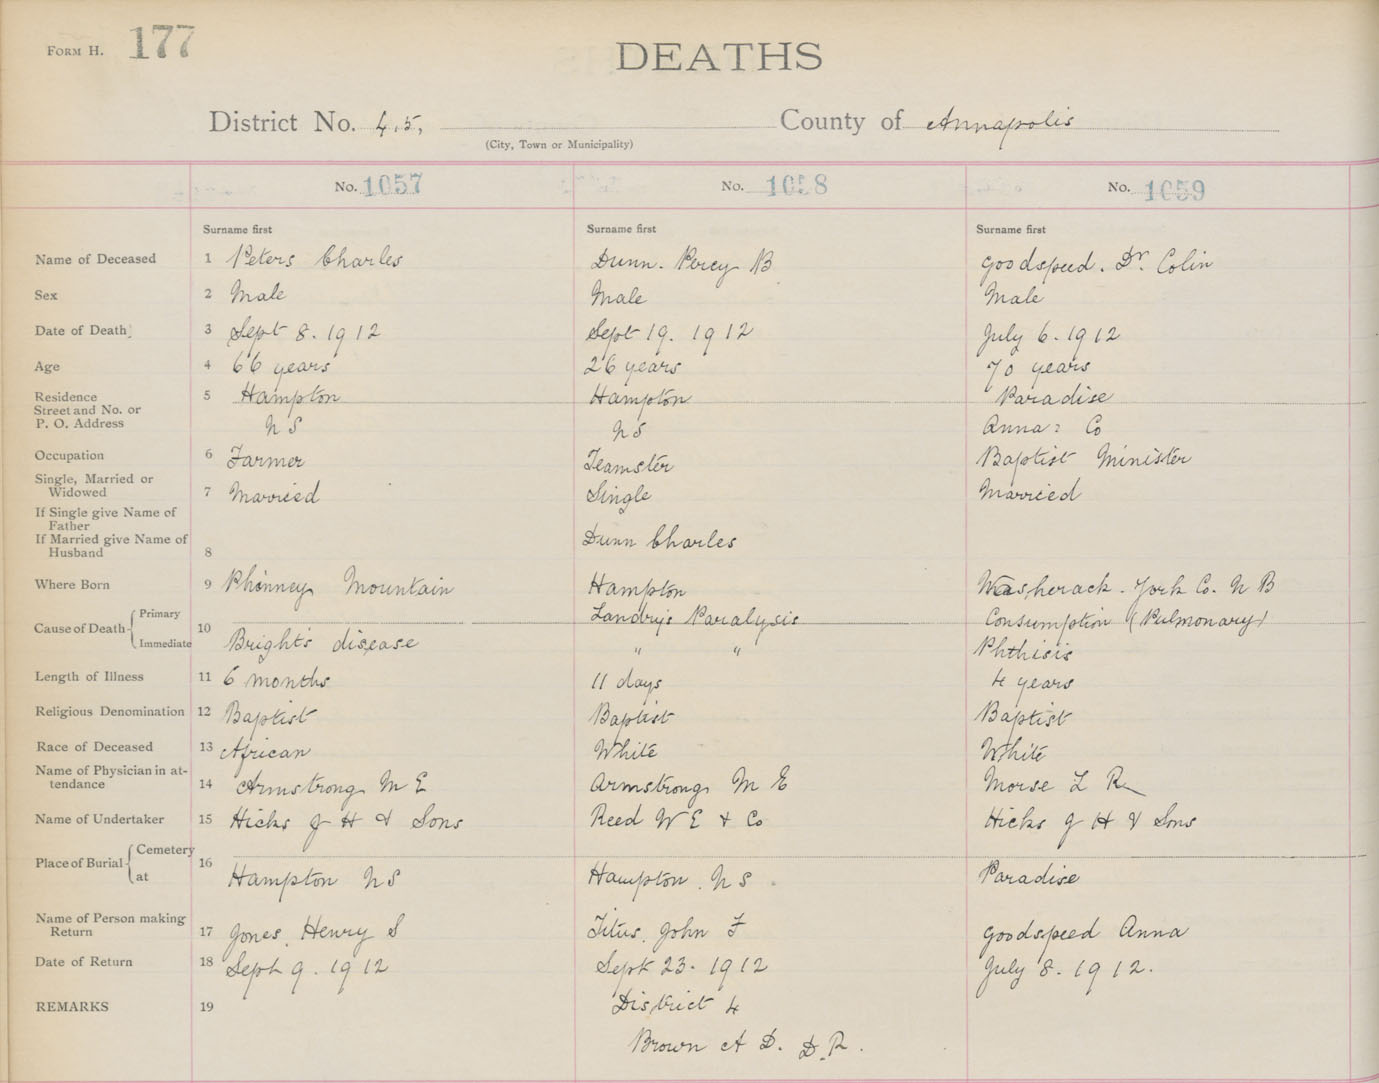 FORM H. 177
DEATHS
District No. 4.5, County of Annapolis
(City, Town or Municipality)
No. 1057 No. 1058 No. 1059
Surname first Surname first Surname first
Name of Deceased 1 Peters Charles Dunn. Percy B Goodspeed. Dr. Colin
Sex 2 Male Male Male
Date of Death 3 Sept 8. 1912 Sept 19. 1912 July 6. 1912
Age 4 66 years 26 years 70 years
Residence 5 Hampton Hampton Paradise
Street and No. or
P. O. Address N S N S Anna: Co
Occupation 6 Farmer Teamster Baptist Minister
Single, Married or
Widowed 7 Married Single Married
If Single give Name of
Father
If Married give Name of Dunn Charles
Husband 8
Where Born 9 Phinney Mountain Hampton York Co. N B
Primary Landry's Paralysis Consumption (Pulmonary)
Cause of Death 10
Immediate Bright's disease " " Phthisis
Length of Illness 11 6 months 11 days 4 years
Religious Denomination 12 Baptist Baptist Baptist
Race of Deceased 13 African White White
Name of Physician in at-
tendance 14 Armstrong M E Armstrong M E Morse L R
Name of Undertaker 15 Hicks J H & Sons Reed W E & Co Hicks J H & Sons
Cemetery
Place of Burial 16
at Hampton N S Hampton. N S Paradise
Name of Person making
Return 17 Jones, Henry S Titus, John F Goodspeed Anna
Date of Return 18 Sept 9. 1912 Sept 23. 1912 July 8. 1912.
REMARKS 19 District 4
Brown A D. D. R.